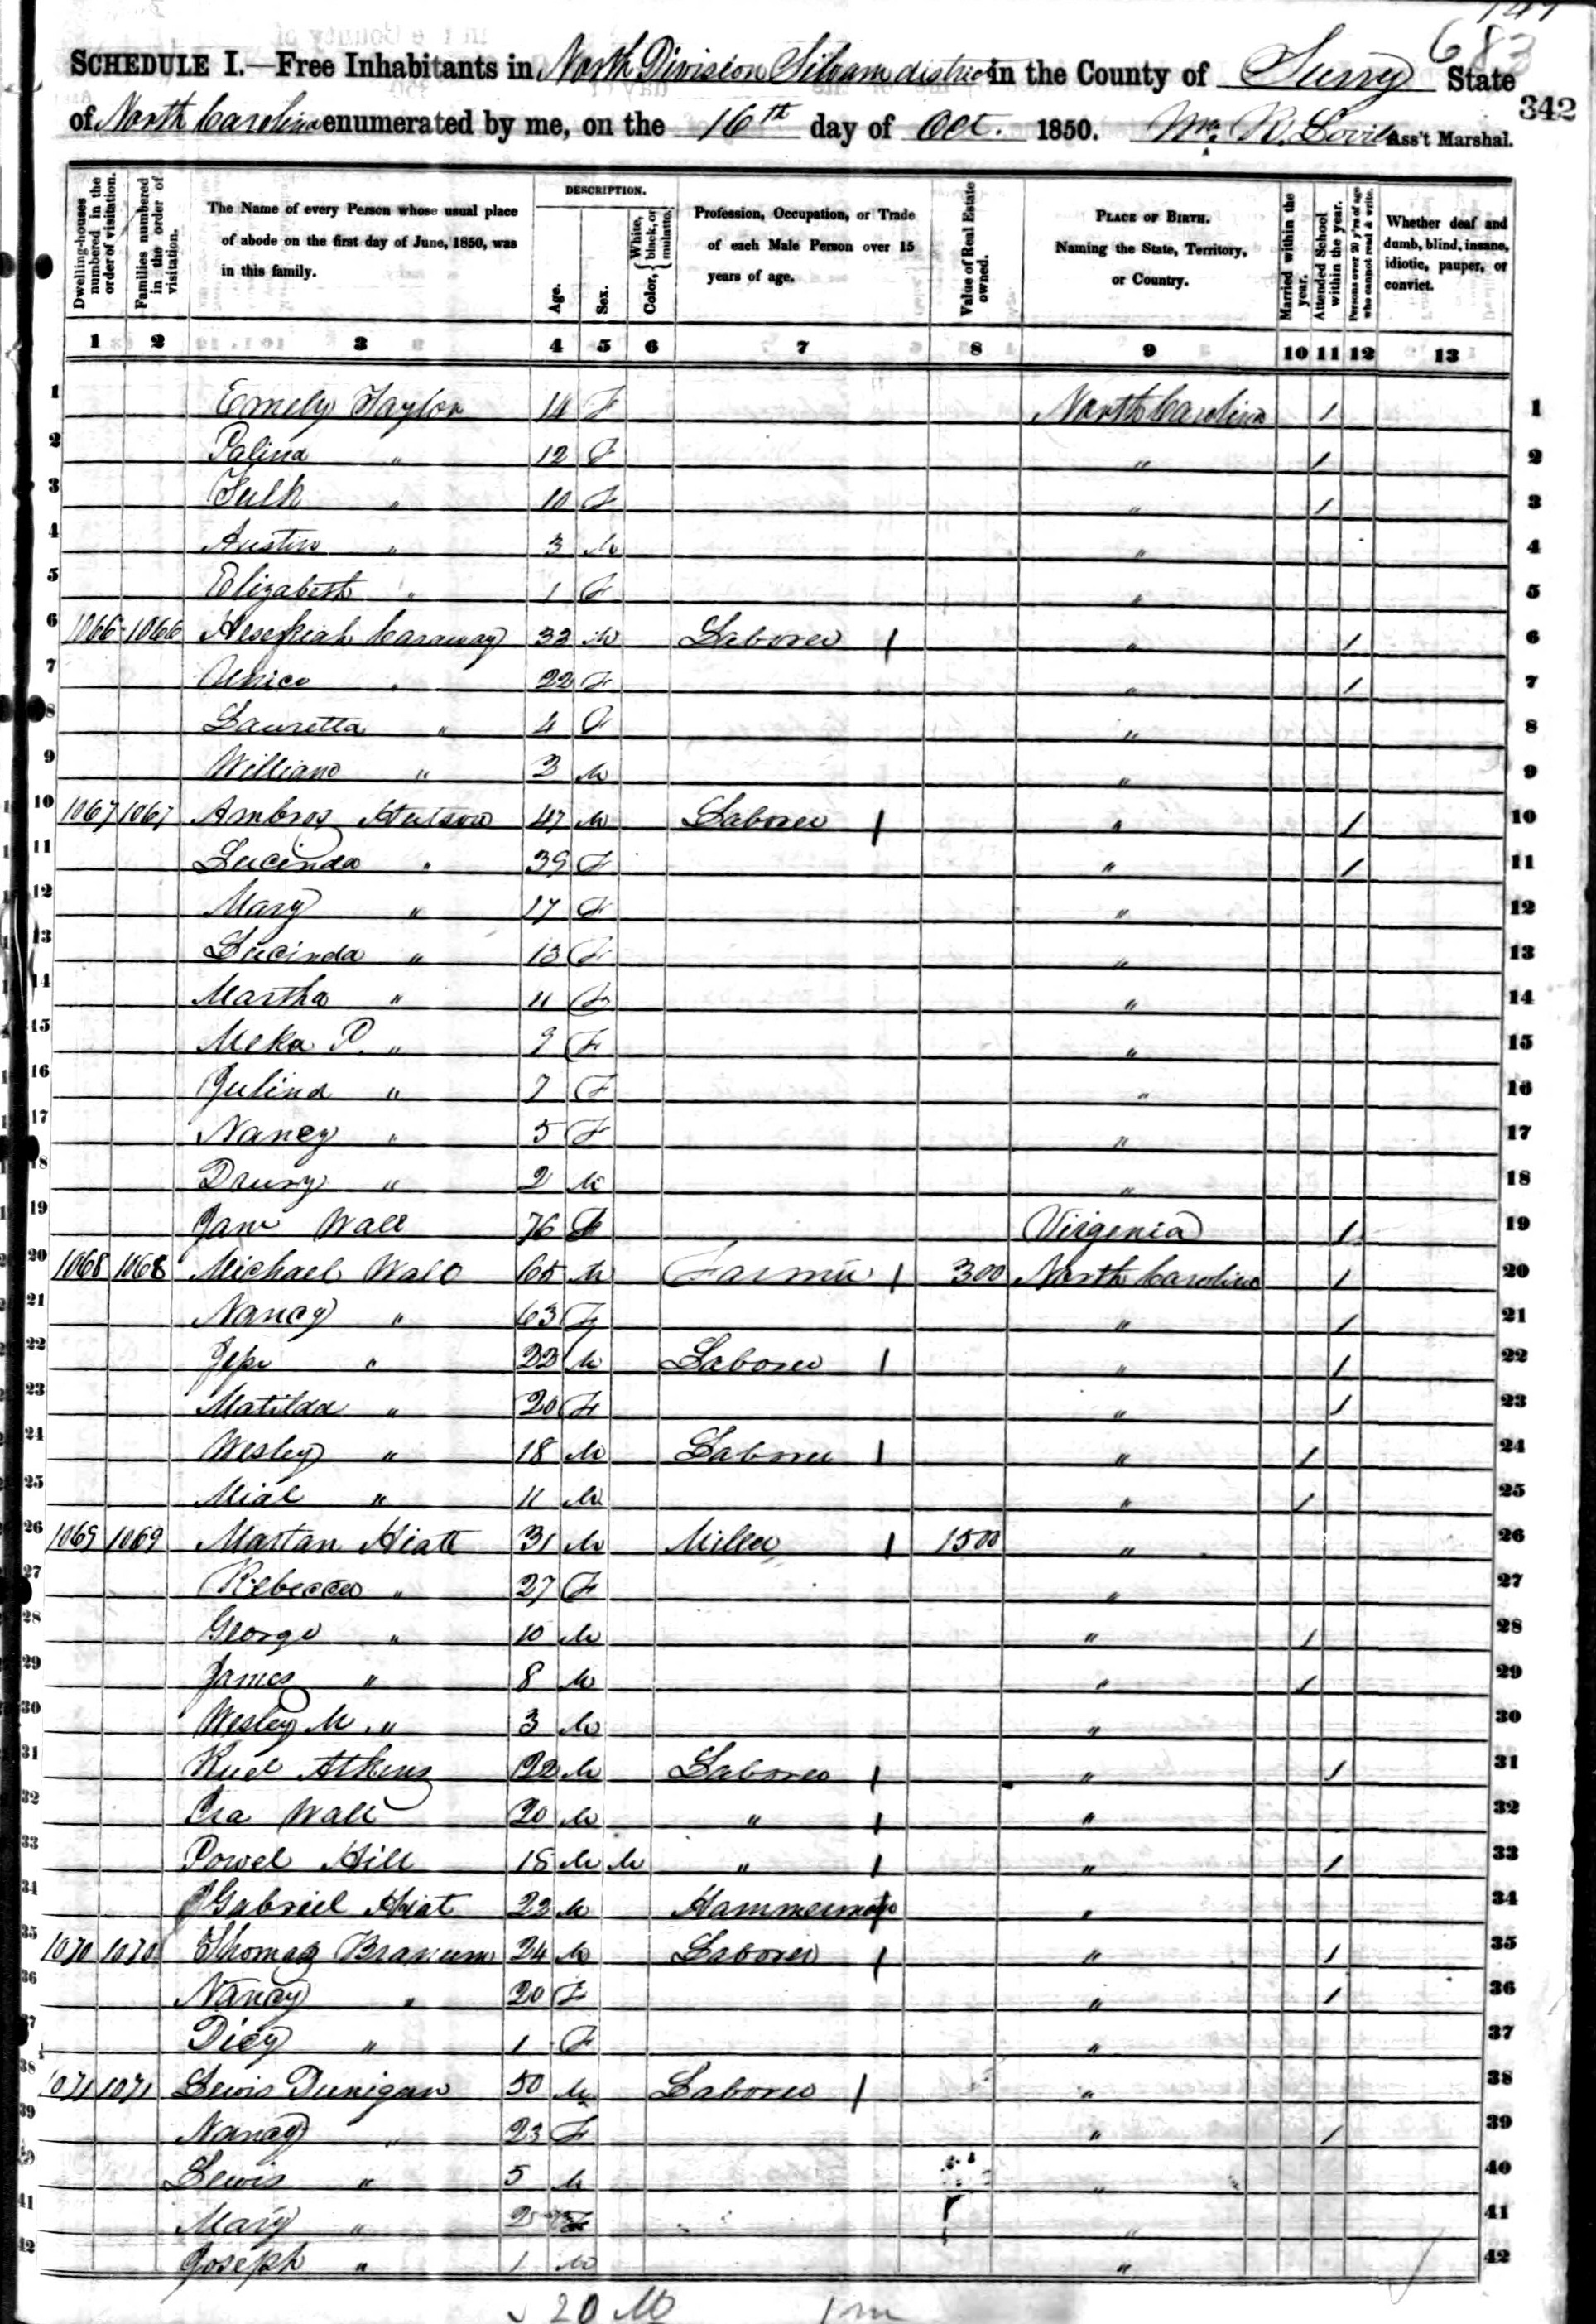 147
683
SCHEDULE I.—Free Inhabitants in North Division Siloam district in the County of Surry State
of North Carolina enumerated by me, on the 16th day of Oct. 1850. Wm R. Lovill Ass't Marshal.
342
Dwelling-houses numbered in the order of visitation.
Families numbered in the order of visitation.
The Name of every Person whose usual place of abode on the first day of June, 1850, was in this family.
DESCRIPTION.
Age.
Sex.
Color, { White, black, or mulatto.
Profession, Occupation, or Trade of each Male Person over 15 years of age.
Value of Real Estate owned.
PLACE OF BIRTH. Naming the State, Territory, or Country.
Married within the year.
Attended School within the year.
Persons over 20 y'rs of age who cannot read & write.
Whether deaf and dumb, blind, insane, idiotic, pauper, or convict.
1 2 3 4 5 6 7 8 9 10 11 12 13
1 Emely Taylor 14 F North Carolina / 1
2 Palina " 12 F " / 2
3 " 10 F " / 3
4 Austin " 3 M " 4
5 Elizabeth " 1 F " 5
6 1066 1066 Hesekiah Caraway 33 M Laborer / " / 6
7 " 22 F " / 7
8 Lauretta " 4 F " 8
9 William " 2 M " 9
10 1067 1067 Ambros Hutson 47 M Laborer / " / 10
11 Lucinda " 39 F " / 11
12 Mary " 17 F " 12
13 Lucinda " 13 F " 13
14 Martha " 11 F " 14
15 Meka P. " 9 F " 15
16 Julina " 7 F " 16
17 Nancy " 5 F " 17
18 Drury " 2 M " 18
19 Jane Wall 76 F Virginia / 19
20 1068 1068 Michael Wall 65 M Farmer / 300 North Carolina / 20
21 Nancy " 63 F " / 21
22 Jesse " 22 M Laborer / " / 22
23 Matilda " 20 F " / 23
24 Wesley " 18 M Laborer / " / 24
25 Mial " 11 M " / 25
26 1069 1069 Martan Hiatt 31 M Miller / 1500 " 26
27 Rebecca " 27 F " 27
28 George " 10 M " / 28
29 James " 8 M " / 29
30 Wesley M. " 3 M " 30
31 Atkins 22 M Laborer / " / 31
32 Ira Wall 20 M " / " 32
33 Powel Hill 18 M M " / " / 33
34 Gabriel Hiat 22 M Hammerman " 34
35 1070 1070 Thomas 24 M Laborer / " / 35
36 Nancy " 20 F " / 36
37 Dicy " 1 F " 37
38 1071 1071 Lewis Dunigan 50 M Laborer / " 38
39 Nancy " 23 F " / 39
40 Lewis " 5 M " 40
41 Mary " F " 41
42 Joseph " 1 M " 42
20 M 1m